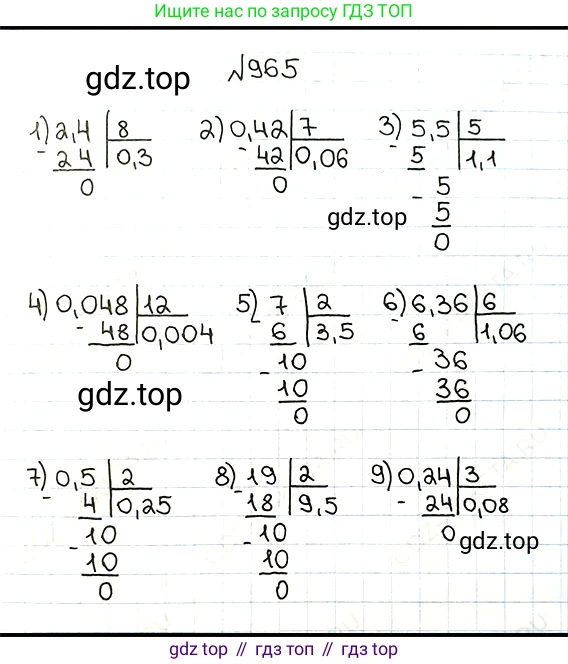 Ищите нас по запросу ГДЗ ТОП
gdz.top
№965
1) 2,4 | 8
- 24 | 0,3
0
2) 0,42 | 7
- 42 | 0,06
0
3) 5,5 | 5
- 5 | 1,1
- 5
5
0
gdz.top
4) 0,048 | 12
- 48 | 0,004
0
5) 7 | 2
- 6 | 3,5
- 10
10
0
6) 6,36 | 6
- 6 | 1,06
- 36
36
0
gdz.top
7) 0,5 | 2
- 4 | 0,25
- 10
10
0
8) 19 | 2
- 18 | 9,5
- 10
10
0
9) 0,24 | 3
- 24 | 0,08
0
gdz.top
gdz top // гдз топ // гдз.top